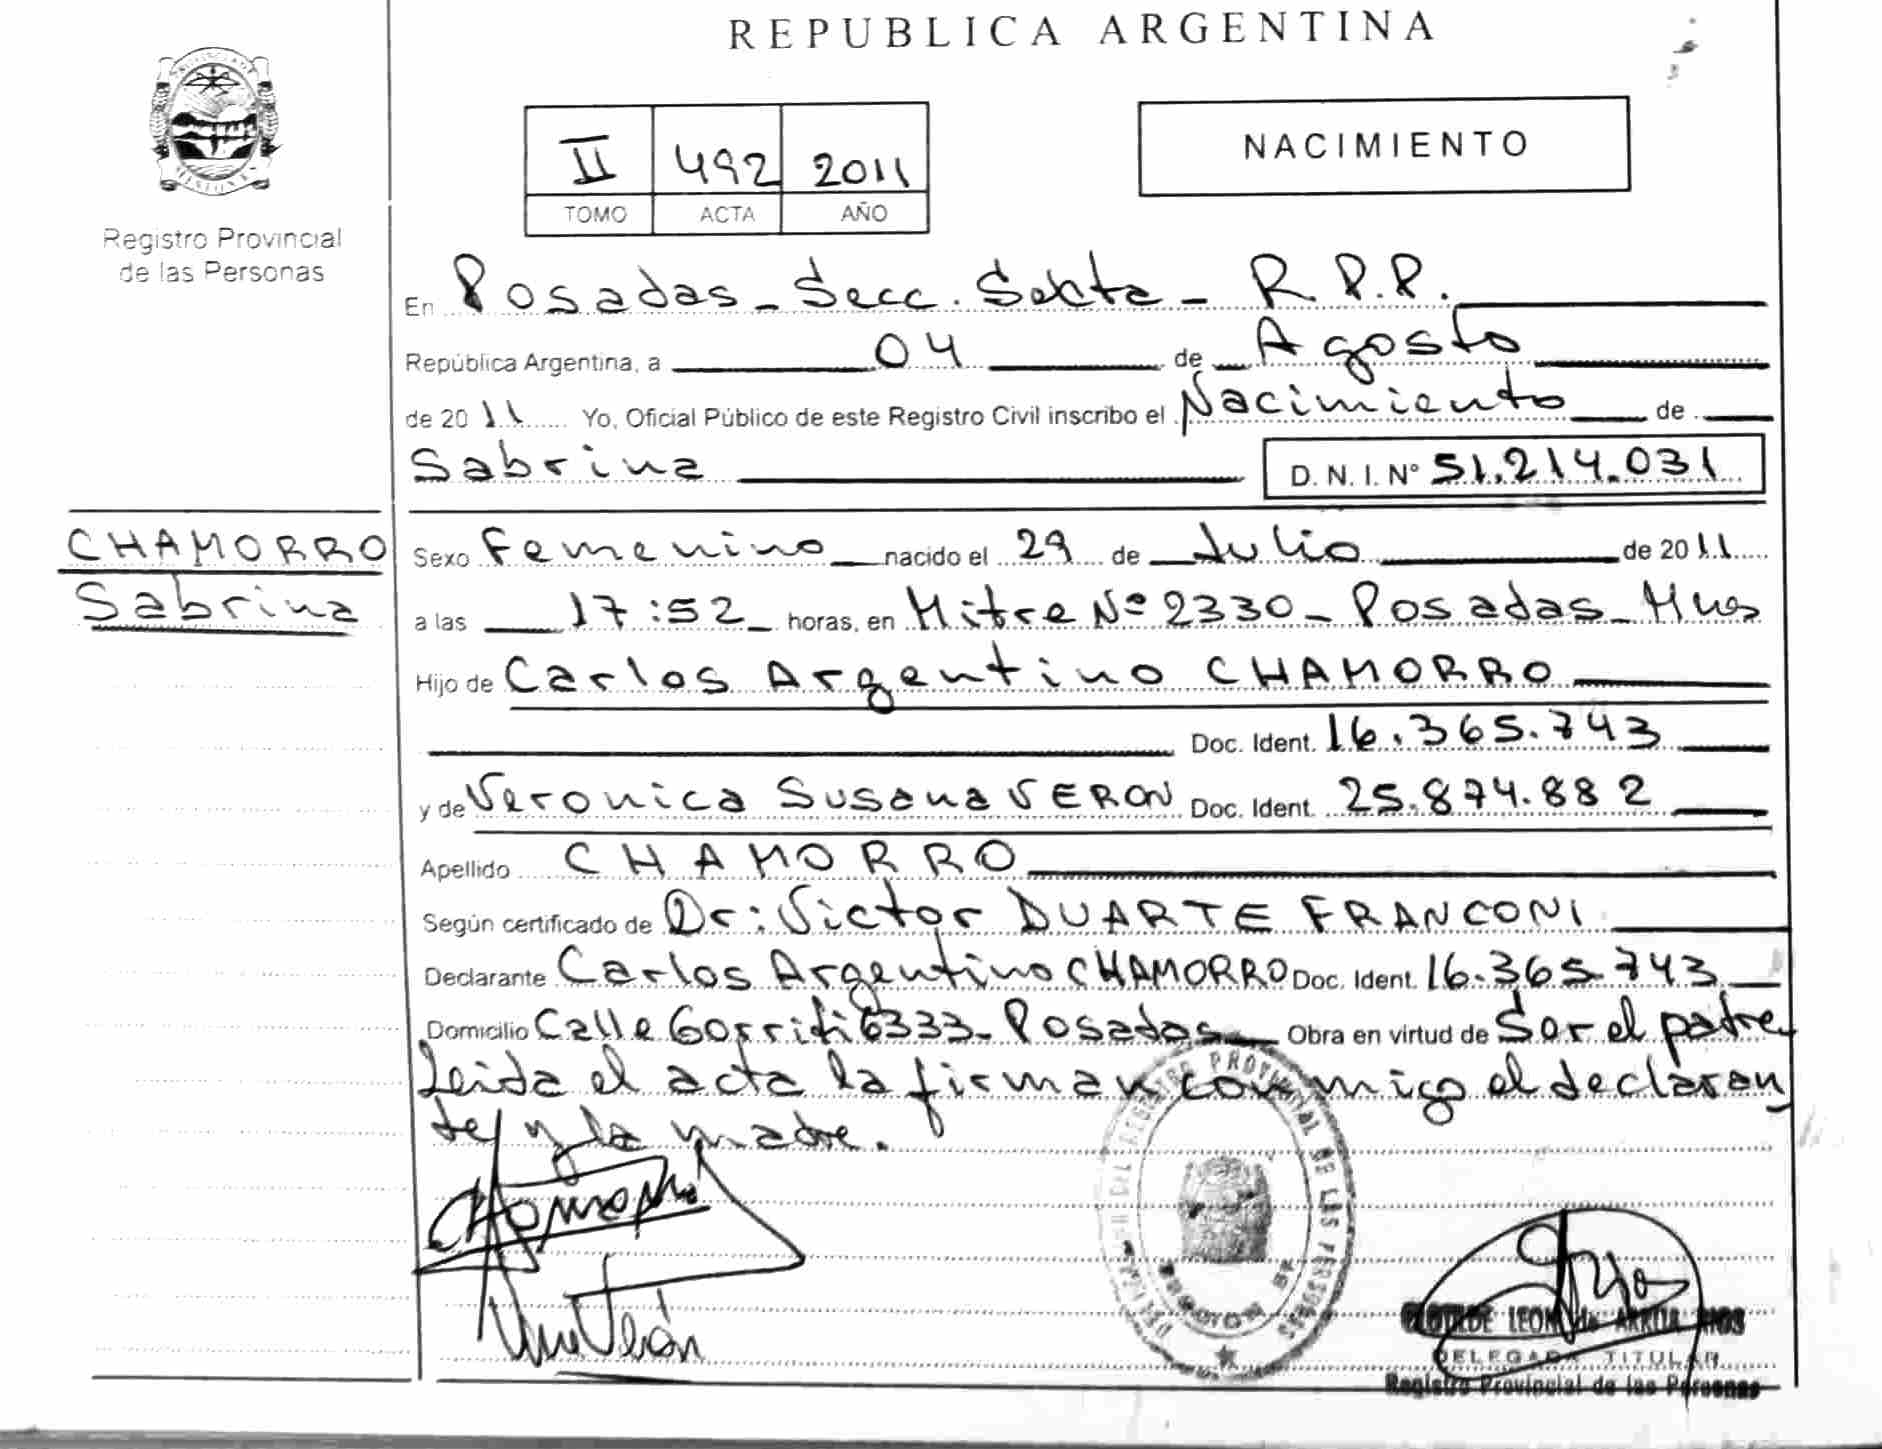 REPUBLICA ARGENTINA
Registro Provincial
de las Personas
II 492 2011
TOMO ACTA AÑO
NACIMIENTO
En Posadas - Secc. Sexta - R.P.P.
República Argentina, a 04 de Agosto
de 2011 Yo, Oficial Público de este Registro Civil inscribo el Nacimiento de
Sabrina D. N. I. N° 51.214.031
CHAMORRO
Sabrina
Sexo Femenino nacido el 29 de Julio de 2011
a las 17:52 horas, en Mitre Nº 2330 - Posadas - Mnes
Hijo de Carlos Argentino CHAMORRO
Doc. Ident. 16.365.743
y de Veronica Susana VERON Doc. Ident. 25.874.882
Apellido CHAMORRO
Según certificado de Dr: Victor DUARTE FRANCONI
Declarante Carlos Argentino CHAMORRO Doc. Ident. 16.365.743
Domicilio Calle Gorriti 6333 - Posadas Obra en virtud de Ser el padre
Leida el acta la firman conmigo el declaran
te y la madre.
REGISTRO PROVINCIAL DE LAS PERSONAS
DELEGADA TITULAR
Registro Provincial de las Personas